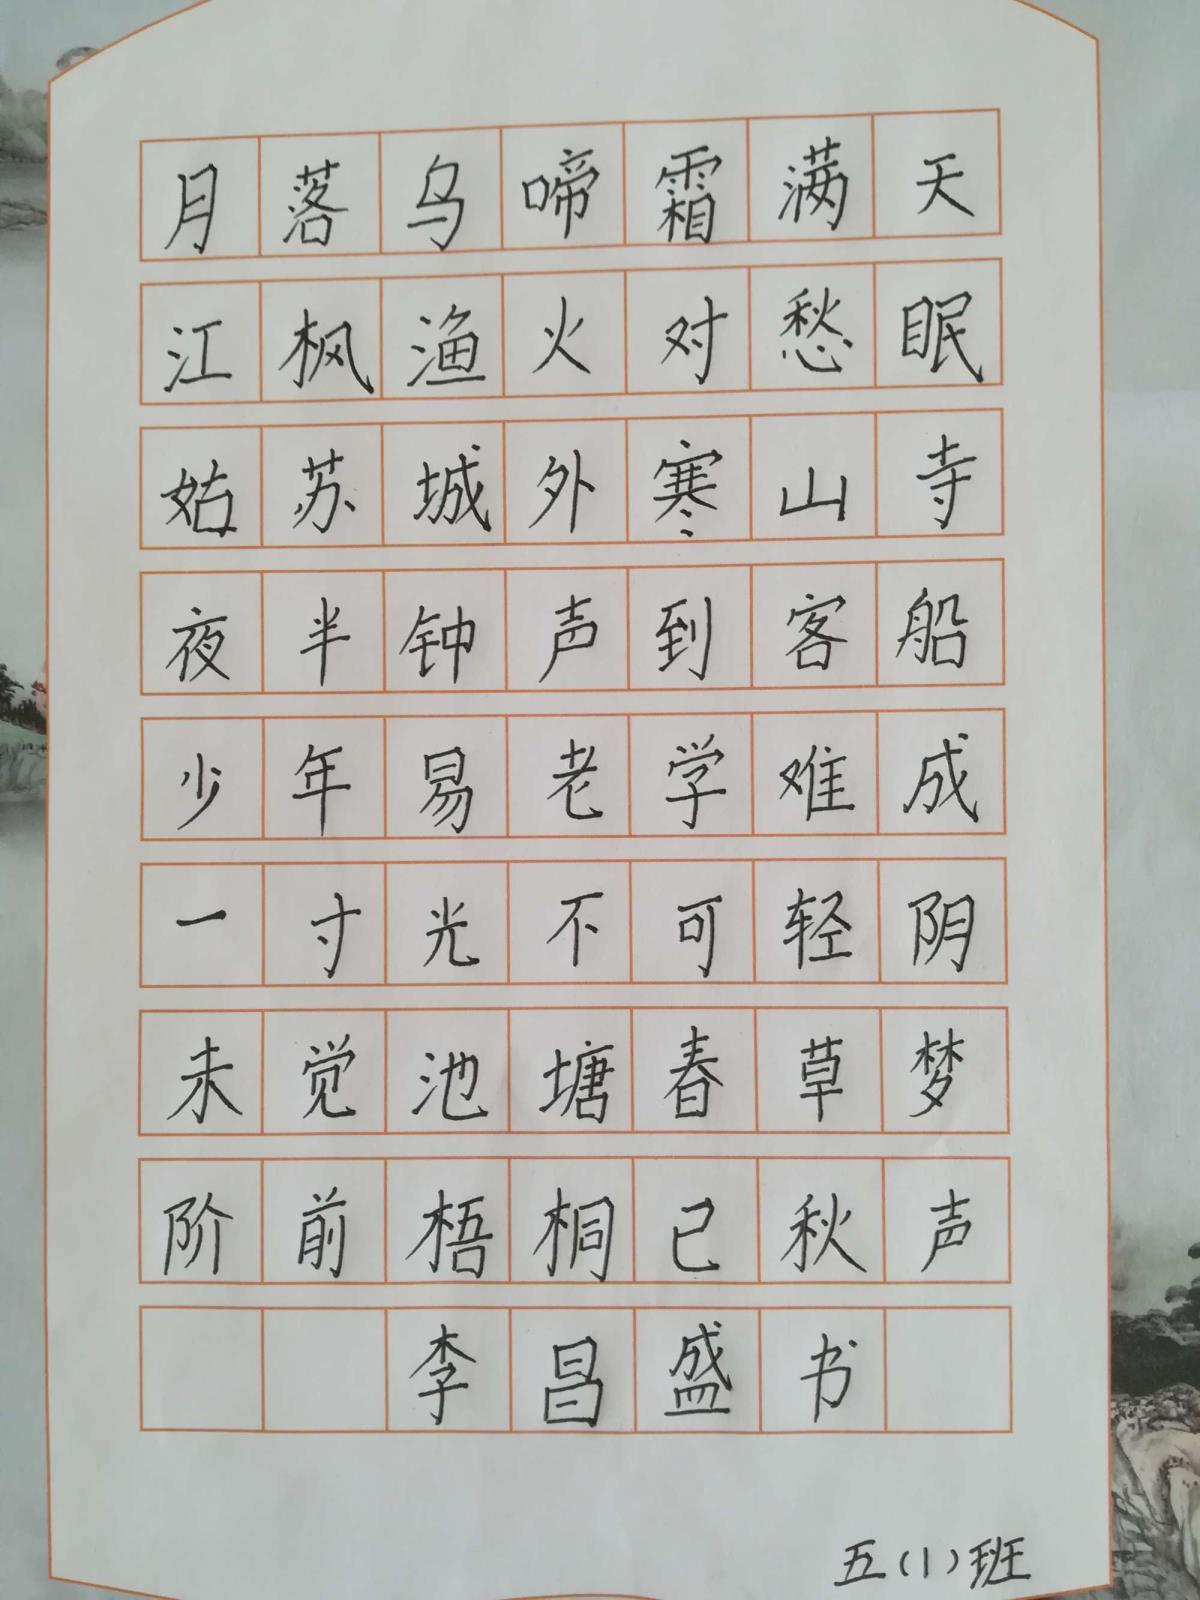 月落乌啼霜满天
江枫渔火对愁眠
姑苏城外寒山寺
夜半钟声到客船
少年易老学难成
一寸光不可轻阴
未觉池塘春草梦
阶前梧桐已秋声
李昌盛书
五(1)班